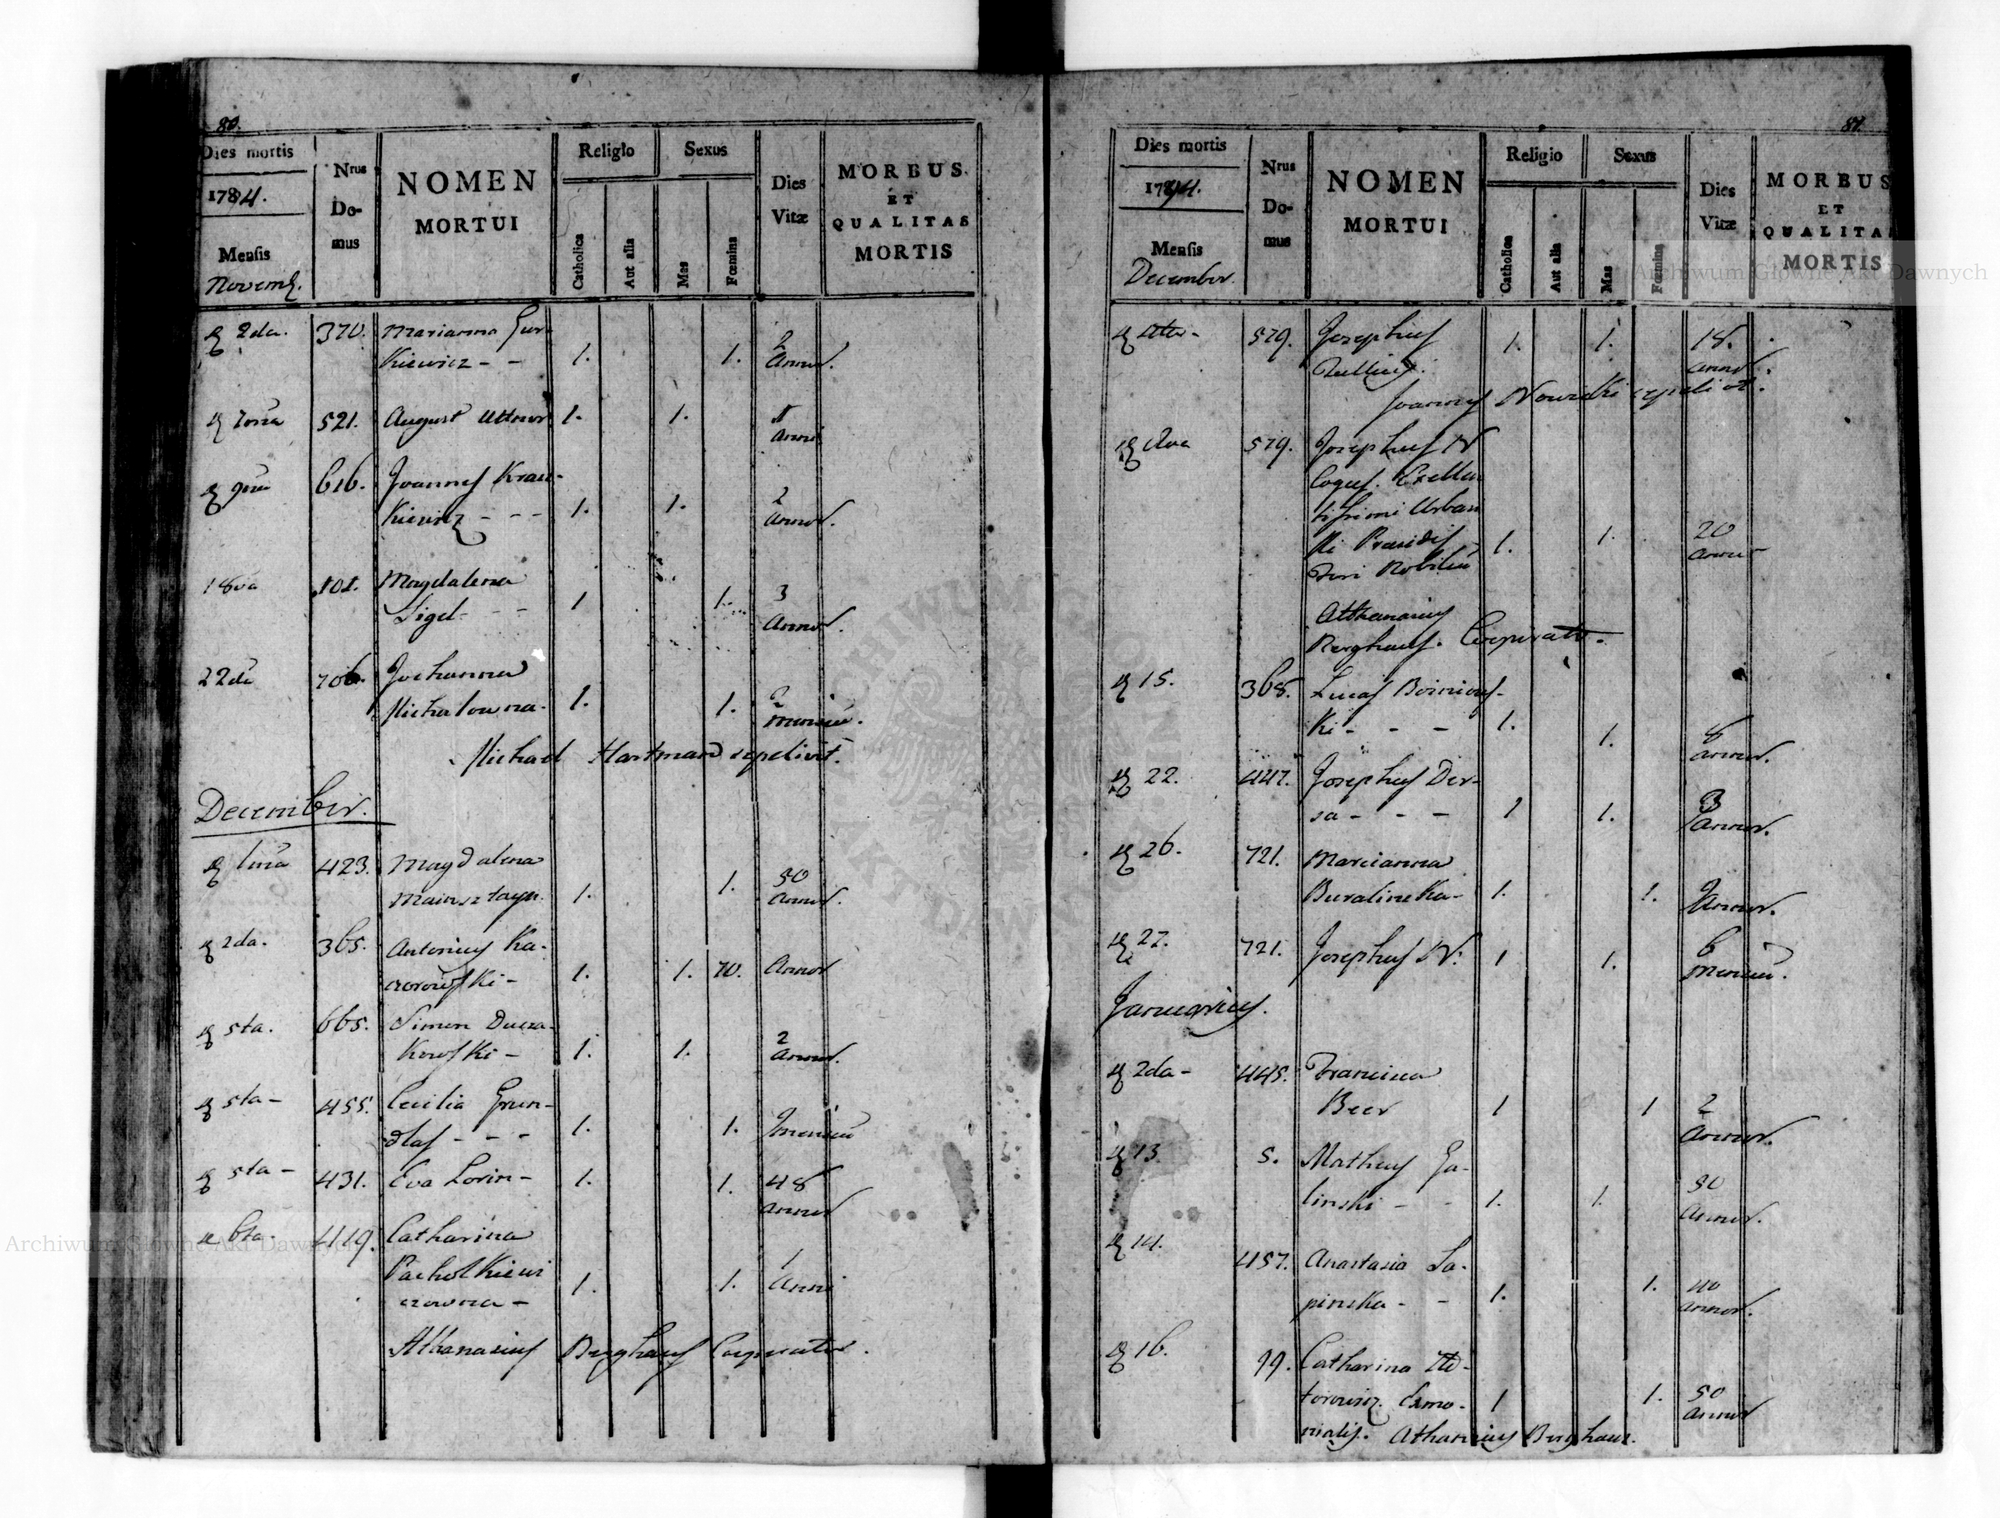 80.
Dies mortis
1784.
Mensis
Novemb.
Nrus
Do-
mus
NOMEN
MORTUI
Religio
Catholica
Aut alia
Sexus
Mas
Fœmina
Dies
Vitæ
MORBUS
ET
QUALITAS
MORTIS
2da. 370. Marianna Gur-
kiewicz - - 1. 1. 2
Annor.
521. August 1. 1. Anni
616. Joannes Krau-
kiewicz - - - 1. 1. 2
Annor.
18va 101. Magdalena
Sigel - - 1 1. 3
Annor.
22da 706. Johanna
Michalowna. 1. 1. 2
mensiu.
Michael Hartman sepelivit.
December.
1ma 423. Magdalena
Mainsztayn. 1. 1. 50
Annor.
2da. 365. Antonius Ka-
czorowski - 1. 1. 70. Annor
5ta. 665. Simon Ducza-
kowski - 1. 1. 2
Annor.
5ta - 455. Cecilia Grun-
- - - 1. 1. mensiu
5ta - 431. Eva Lorin - 1. 1. 48
Annor
6ta. 419. Catharina
Pacholkiewi
czowna - 1. 1. 1
Anni
Athanasius Berghaus Cooperator.
81.
Dies mortis
1794.
Mensis
December.
Nrus
Do-
mus
NOMEN
MORTUI
Religio
Catholica
Aut alia
Sexus
Mas
Fœmina
Dies
Vitæ
MORBUS
ET
QUALITAS
MORTIS
579. Josephus
1. 1. 18.
Annor.
Joannes Nowicki sepeliit.
8va 579. Josephus N
Coqus. Excellen
tissimi Urban
ski Praesidis
Fori Nobiliu 1. 1. 20
Annor
Athanasius
Berghaus. Cooperator.
15. 368. Lucas Boiniows-
ki - - - 1. 1. 8
Annor.
22. 447. Josephus Der-
sa - - - 1 1. 3
Annor.
26. 721. Marianna
Buralinska - 1. 1. Annor.
27. 721. Josephus N. 1 1. 6
mensiu.
Januarius.
2da - 445. Francisca
Beer 1 1 2
Annor.
13. 5. Matheus Ga-
linski - - 1. 1. 30
Annor.
14. 457. Anastasia La-
pinska - - 1. 1. 40
Annor.
16. 99. Catharina
torowicz. Demo-
nialis. 1 1. 50
Annor
Athanasius Berghaus.
Archiwum Główne Akt Dawnych
Archiwum Główne Akt Dawnych
ARCHIWUM GŁÓWNE AKT DAWNYCH